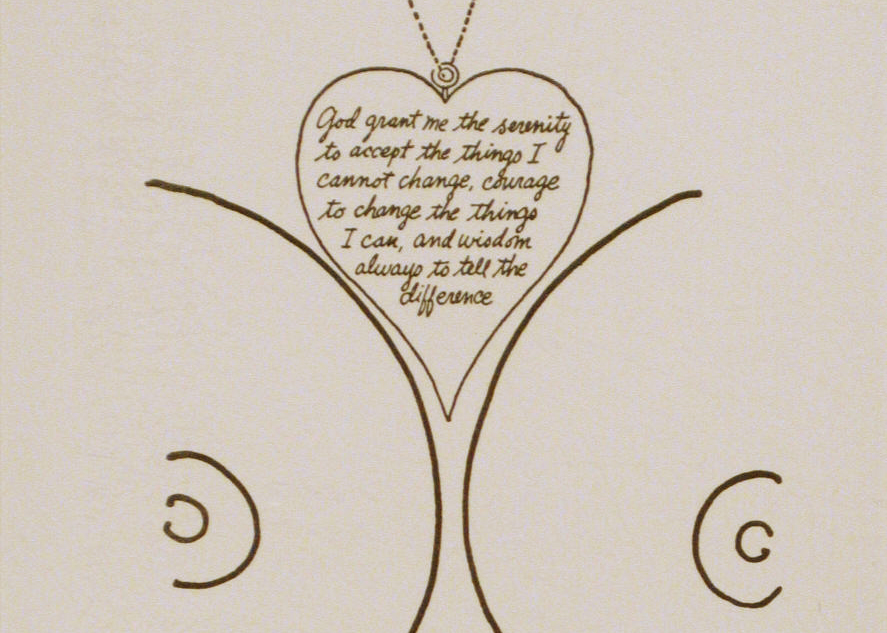 God grant me the serenity
to accept the things I
cannot change, courage
to change the things
I can, and wisdom
always to tell the
difference